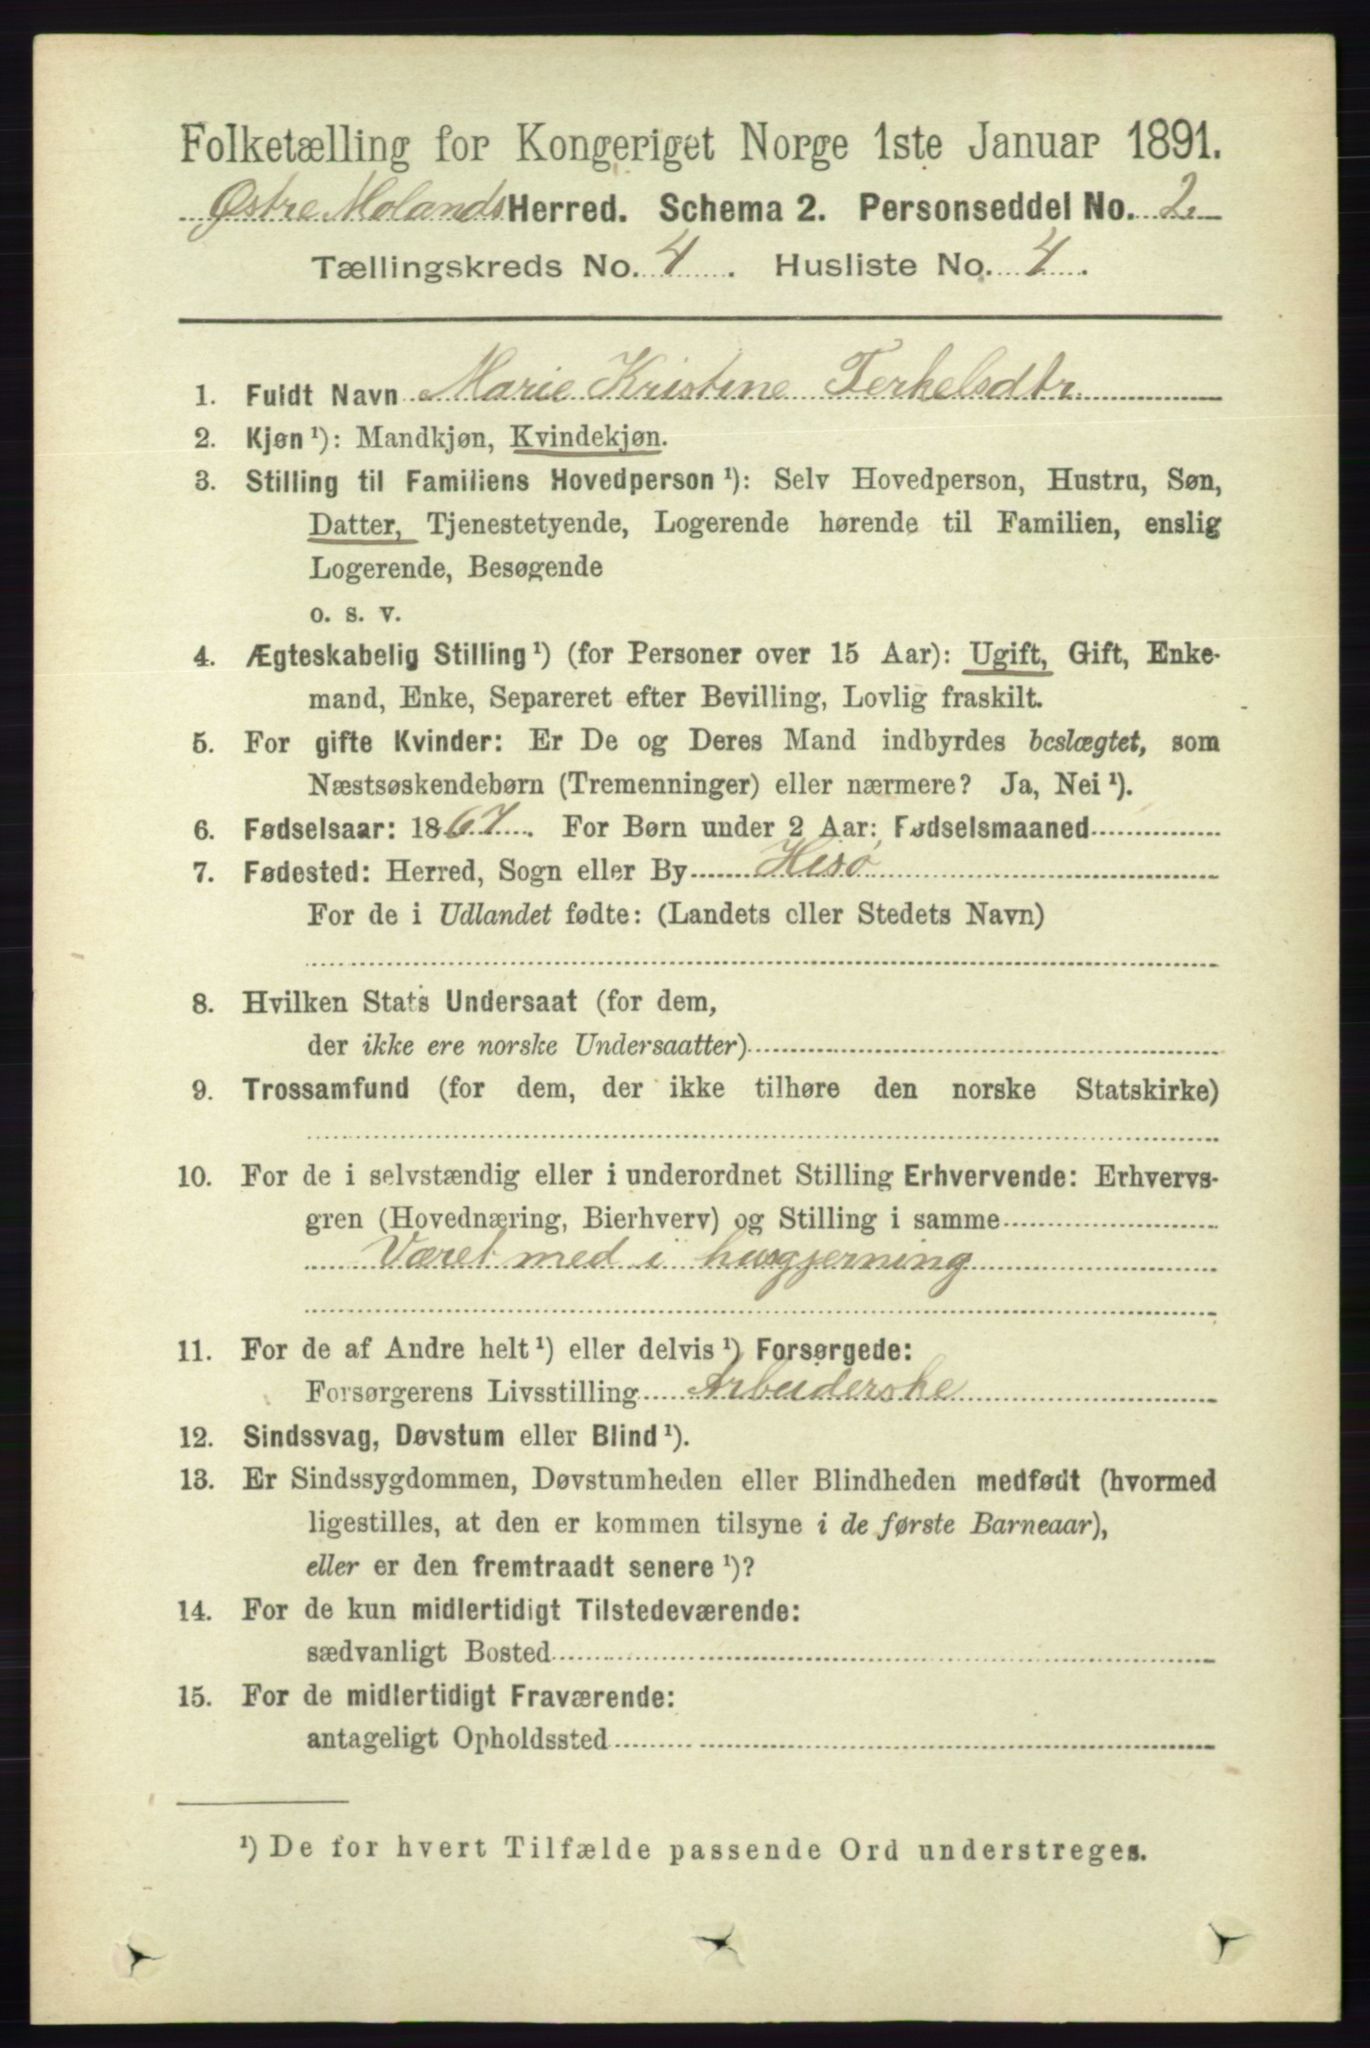 Folketælling for Kongeriget Norge 1ste Januar 1891.
Østre Molands Herred. Schema 2. Personseddel No. 2.
Tællingskreds No. 4. Husliste No. 4.
1. Fuldt Navn Marie Kristine Terkelsdtr.
2. Kjøn¹): Mandkjøn, Kvindekjøn.
3. Stilling til Familiens Hovedperson¹): Selv Hovedperson, Hustru, Søn,
Datter, Tjenestetyende, Logerende hørende til Familien, enslig
Logerende, Besøgende
o. s. v.
4. Ægteskabelig Stilling¹) (for Personer over 15 Aar): Ugift, Gift, Enke-
mand, Enke, Separeret efter Bevilling, Lovlig fraskilt.
5. For gifte Kvinder: Er De og Deres Mand indbyrdes beslægtet, som
Næstsøskendebørn (Tremenninger) eller nærmere? Ja, Nei¹).
6. Fødselsaar: 1867. For Børn under 2 Aar: Fødselsmaaned
7. Fødested: Herred, Sogn eller By Hisø
For de i Udlandet fødte: (Landets eller Stedets Navn)
8. Hvilken Stats Undersaat (for dem,
der ikke ere norske Undersaatter)
9. Trossamfund (for dem, der ikke tilhøre den norske Statskirke)
10. For de i selvstændig eller i underordnet Stilling Erhvervende: Erhvervs-
gren (Hovednæring, Bierhverv) og Stilling i samme
Været med i husgjerning
11. For de af Andre helt¹) eller delvis¹) Forsørgede:
Forsørgerens Livsstilling Arbeiderske
12. Sindssvag, Døvstum eller Blind¹).
13. Er Sindssygdommen, Døvstumheden eller Blindheden medfødt (hvormed
ligestilles, at den er kommen tilsyne i de første Barneaar),
eller er den fremtraadt senere¹)?
14. For de kun midlertidigt Tilstedeværende:
sædvanligt Bosted
15. For de midlertidigt Fraværende:
antageligt Opholdssted
¹) De for hvert Tilfælde passende Ord understreges.